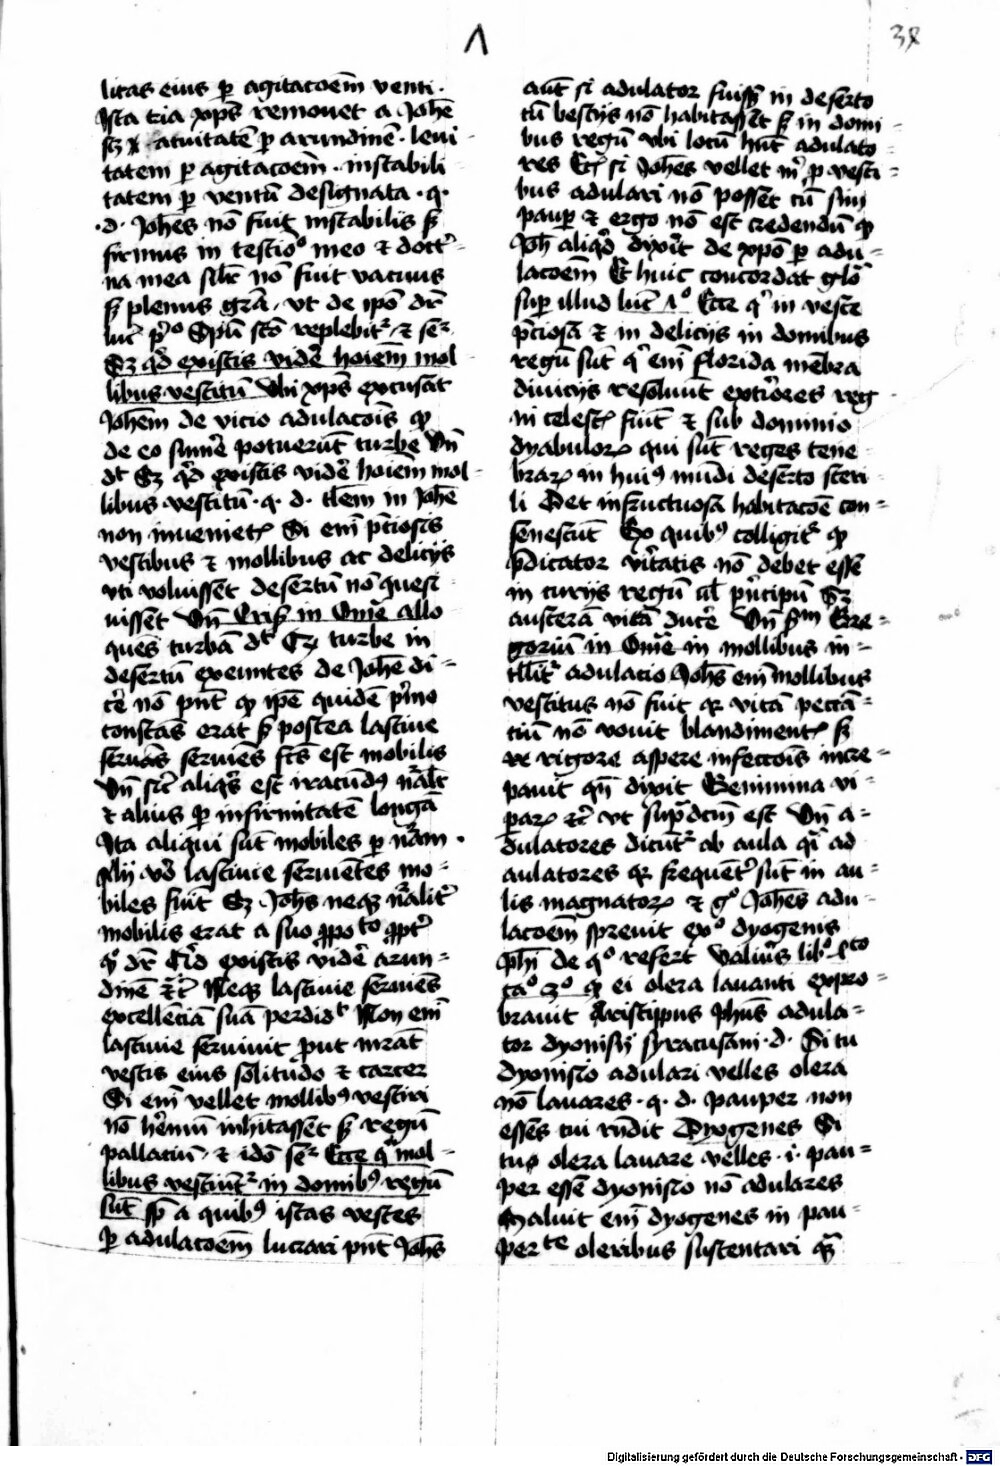 Λ
38
litas eius ꝑ agitacōem venti ·
Ista tria xp̄s remouet a Johē
sꝫ vacuitatē ꝑ arundinē · leui
tatem ꝑ agitacōem · instabili
tatem ꝑ ventū designata · q ·
· d · Johēs nō fuit instabilis sꝫ
firmus in testiō meo ⁊ doctⁱ
na mea silr nō fuit vacuus
sꝫ plenus grā · vt de ip̄o dr̄
luc pͦ Spū scō replebitᷣ ⁊ sr̄
Sꝫ qͥd existis vidē hoiem mol
libus vestitū Vbi xp̄s excusat
Johēm de vicio adulacōis qꝫ
de eo sumē potuerūt turbe Vn̄
dt Sꝫ qͥd existis vidē hoiem mol
libus vestitū · q · d · talem in Johē
non inuenietꝭ Si em̄ p̄ciosis
vestibus ⁊ mollibus ac delicijs
vti voluissēt desertū nō quesi
uissēt Vn̄ Cris̄ in Omē allo
quēs turbā dt Sꝫ turbe in
desertū exeuntes de Johē di
cē nō pn̄t qꝫ ip̄e quidē pͥmo
constās erat sꝫ postea lasciuie
seruiēs fcs̄ est mobilis
Vn̄ sic aliqͥs est iracūdꝰ nālr
⁊ alius ꝑ infirmitatē longā
Ita aliqui sūt mobiles ꝑ nām ·
Alij v̄o lasciuie seruientes mo
biles fiūt Sꝫ Johs neqꝫ nālitᷣ
mobilis erat a suo ꝓpoto ꝓptᷣ
qͣ dr̄ Qͥd existis vidē arun
dinē ⁊c̄ Neqꝫ lasciuie seruiēs
excellēciā suā perdidᵗ Non em̄
lasciuie seruiuit ꝓut mrāt
vestis eius solitudo ⁊ carcer
Si em̄ vellet mollibꝰ vestiri
nō hēmū inhitasset sꝫ regū
pallaciū · ⁊ idō sr̄ Ecce qͥ mol
libus vestiūtᷣ in domibꝰ regū
sūt sꝫ a quibꝰ istas vestes
ꝑ adulacōem lucrari pn̄t Johs
aūt si adulator fuissꝫ in deserto
cū bestijs nō habitassēt sꝫ in domi
bus regū vbi locū hn̄t adulato
res Et si Johēs vellet mͥ ꝓ vesti
bus adulari nō possēt cū sim
pauꝑ ⁊ ergo nō est credendū qꝫ
Joh aliqͥd dixit de xpō ꝑ adu
lacōem Et huic concordat glō
suꝑ illud luc 1ͦ Ecce qͥ in veste
p̄ciosā ⁊ in delicijs in domibus
regū sūt qͥ em̄ florida mēbra
diuicijs resoluūt extiores reg
ni celestꝭ fiūt ⁊ sub dominio
dyaboloꝝ qui sūt reges tene
braꝝ in huiꝰ mūdi deserto steri
li et infructuosā habitacōe con
senescūt Ex quibꝰ colligitᷣ qꝫ
p̄dicator vͥtatis nō debet esse
in curijs regū vl pͥncipū Sꝫ
austerā vitā ducē Vn̄ sm̄ Gre
goriū in Omē in mollibus in
tllr adulacio Johs em̄ mollibus
vestitus nō fuit qꝛ vitā peccā
tiū nō vouit blandimentꝭ sꝫ
ex rigore aspere infeccōis incre
pauit qn̄ dixit Genimina vi
paraꝝ ⁊c̄ vt sup̄dcm̄ est Vn̄ a
dulatores dicūtᷣ ab aula qͥ ad
aulatores qꝛ frequētᷣ sūt in au
lis magnatoꝝ ⁊ gͦ Johēs adu
lacōem spreuit exͦ dyogenis
Ph̄i de qͦ refert Valiūs libͦ 4to
caͦ 3ͦ qꝫ ei olera lauanti expro
brauit Aristippus ph̄us adula
tor dyonisij syracusani · d · Si tu
dyonisio adulari velles olera
nō lauares · q · d · pauper non
esses cui rn̄dit Dyogenes Si
tu olera lauare velles · i · pau
per essē dyonisio nō adulares
Maluit em̄ dyogenes in pau
perte oleribus sustentari qͣꝫ
Digitalisierung gefördert durch die Deutsche Forschungsgemeinschaft · DFG